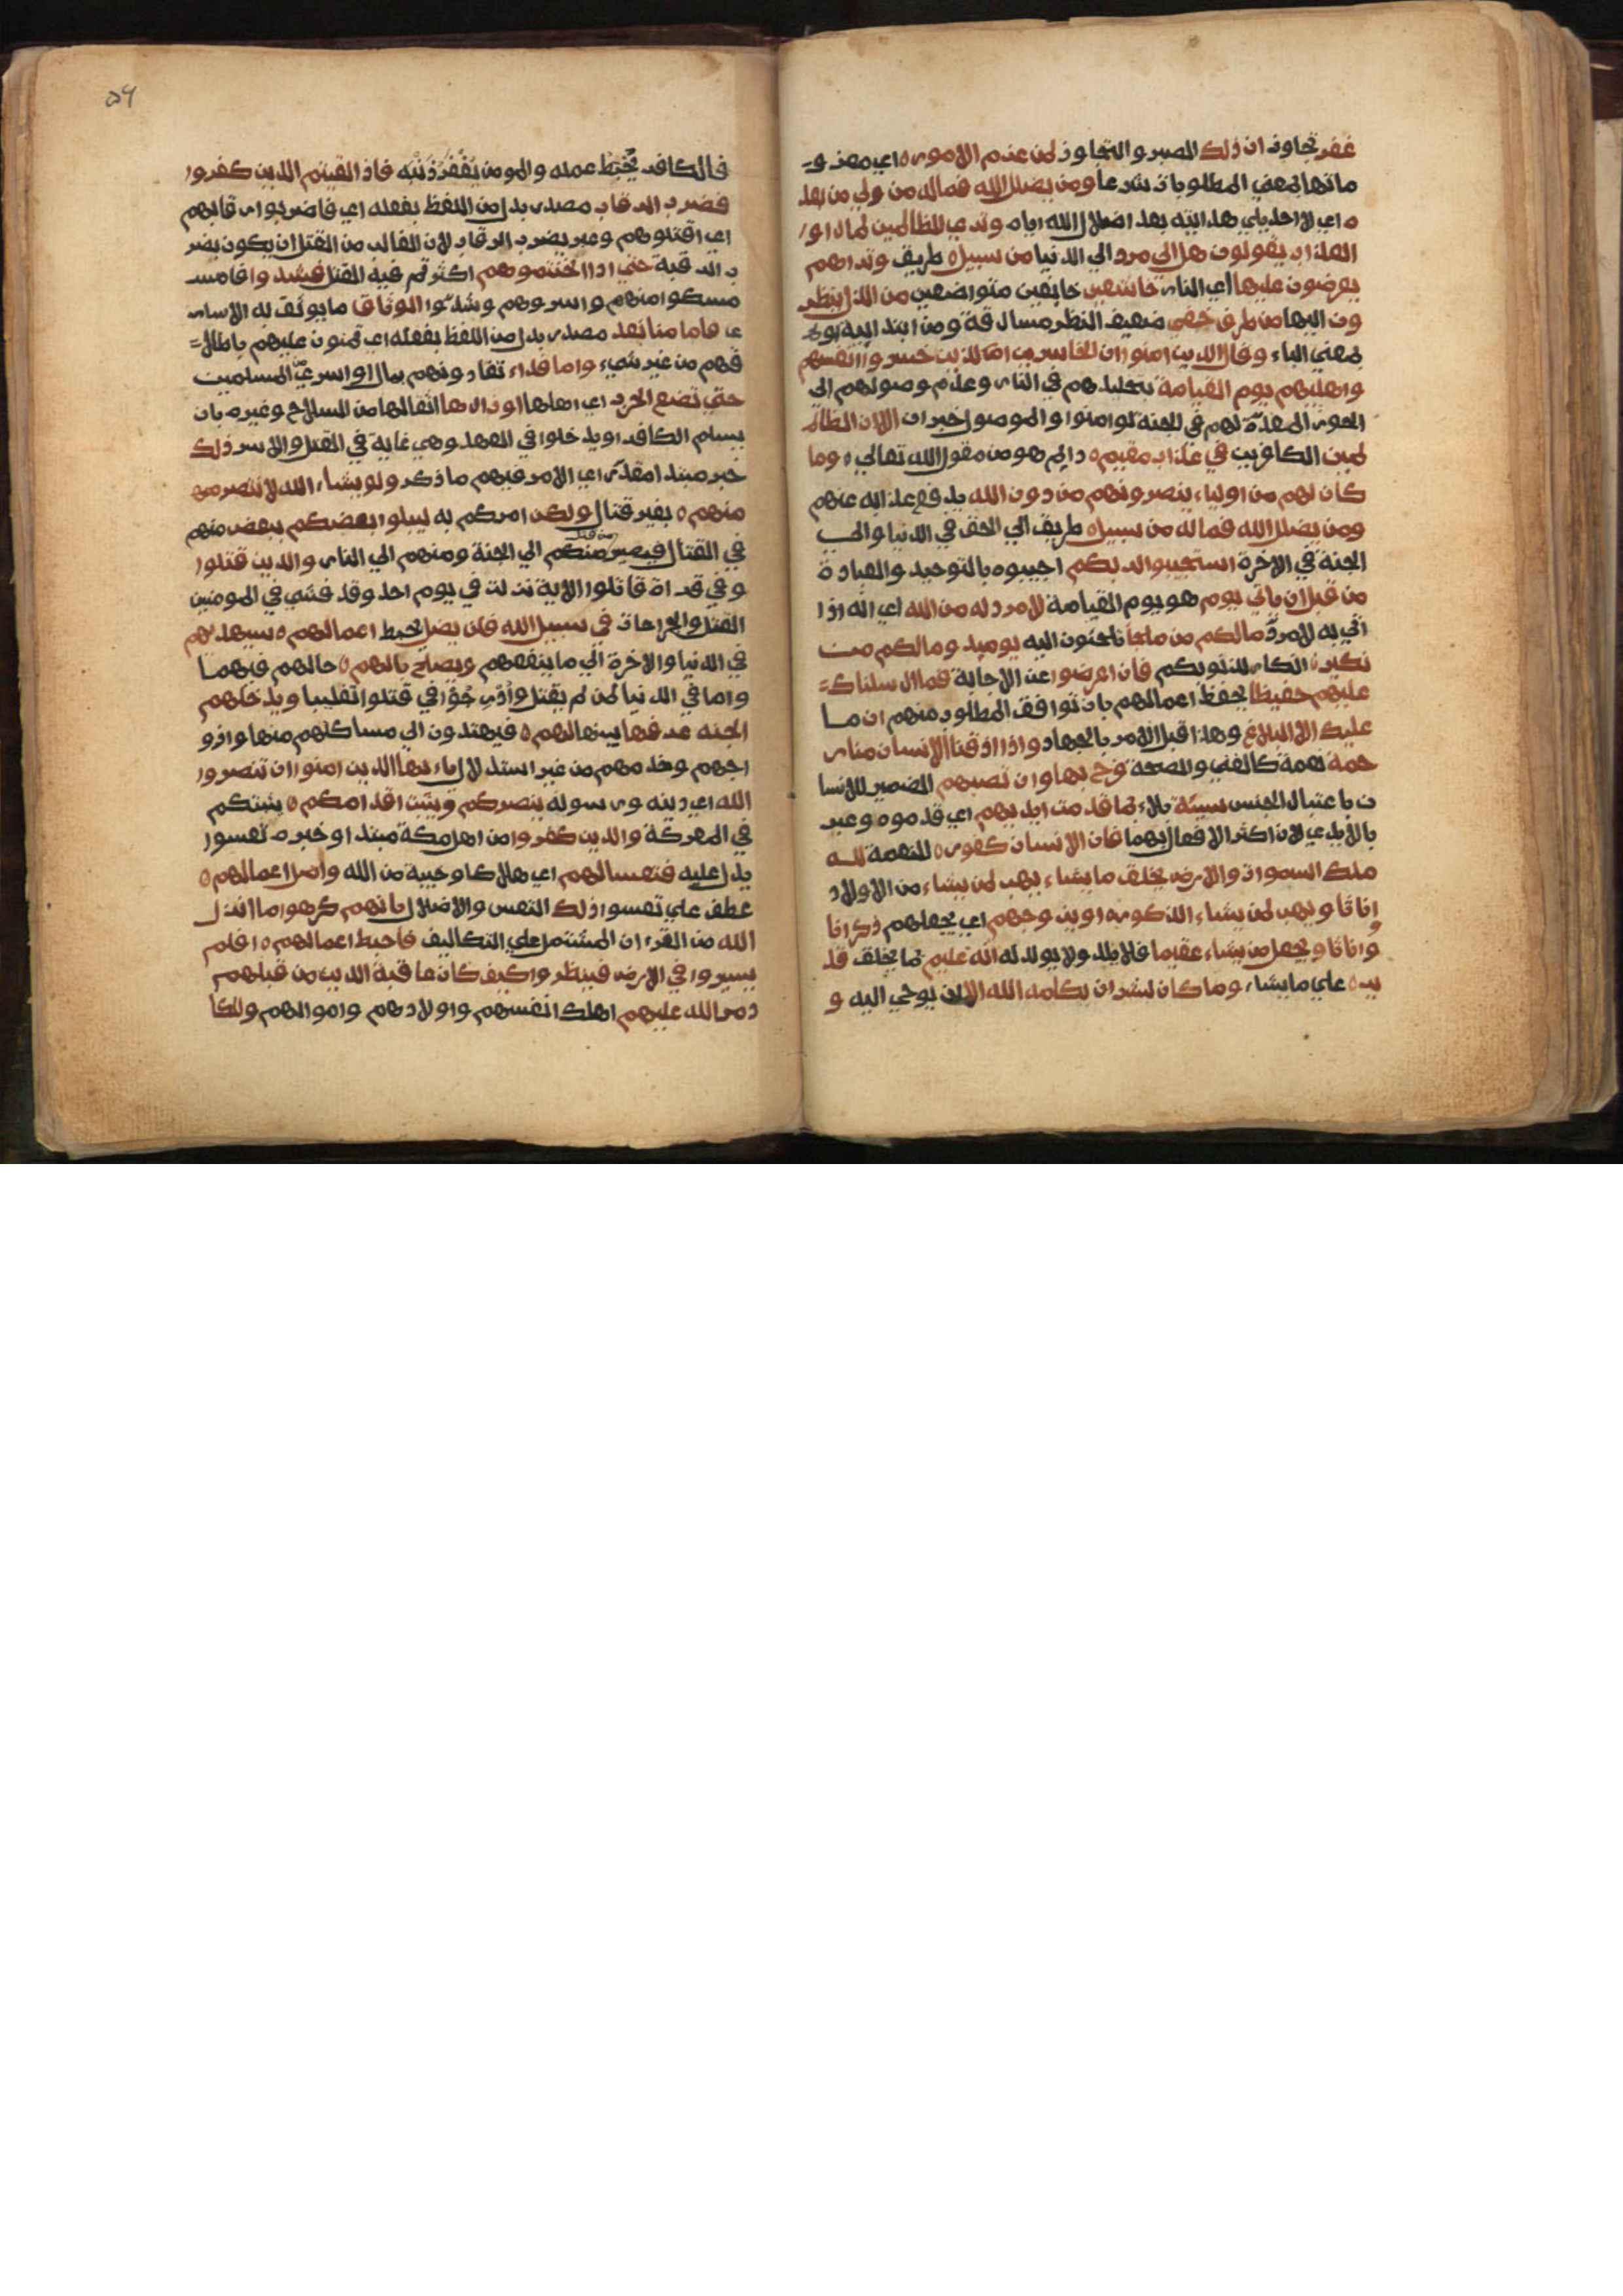 غفر تجاوز ان ذلك الصبر والتجاوز لمن عزم الامور ه اي معزو
ماتها بمعني المطلوبات شرعا ومن يضلل الله فماله من ولي من بعد
ه اي لا احد يلي هدايته بعد اضلال الله اياه وتري الظالمين لما راو
العذاب يقولون هل الي مرد الي الدنيا من سبيل ه طريق وتراهم
يعرضون عليها اي النار خاشعين خايفين متواضعين من الذل ينظر
ون اليها من طرف خفي ضعيف النظر مسارقة ومن ابتدايية او
بمعني الباء وقال الذين امنوا ان الخاسرين الذين خسروا انفسهم
واهليهم يوم القيامة بتخليدهم في النار وعدم وصولهم الي
الحور المعدة لهم في الجنة لو امنوا والموصول خبر ان الا ان الظا
لمين الكافرين في عذاب مقيم ه دايم هو من مقول الله تعالي ه وما
كان لهم من اولياء ينصرونهم من دون الله يدفع عذابه عنهم
ومن يضلل الله فما له من سبيل ه طريق الي الحق في الدنيا والي
الجنة في الاخرة استجيبوا لربكم اجيبوه بالتوحيد والعبادة
من قبل ان ياتي يوم هو يوم القيامة لا مرد له من الله اي انه اذا
اتي به لا مرد مالكم من ملجا تلجئون اليه يوميد ومالكم من
نكير ه انكار لذنوبكم فان اعرضوا عن الاجابة فما ارسلناك
عليهم حفيظا تحفظ اعمالهم بان توافق المطلوب منهم ان ما
عليك الا البلاغ وهذا قبل الامر بالجهاد واذا اذقنا الانسان منا ر
حمة نعمة كالغني والصحة فرح بها وان تصبهم الضمير للانسا
ن باعتبار الجنس سيئة بلاء بما قدمت ايديهم اي قدموه وعبر
بالايدي لان اكثر الافعال بهما فان الانسان كفور ه للنعمة لله
ملك السموات والارض يخلق ما يشاء يهب لمن يشاء من الاولاد
اناثا ويهب لمن يشاء الذكور ه او يزوجهم اي يجعلهم ذكرانا
واناثا ويجعل من يشاء عقيما فلا يلد ولا يولد له انه عليم بما يخلق قد
ير ه علي ما يشاء وما كان لبشر ان يكلمه الله الا ان يوحي اليه و
٥٩
فالكافر يحبط عمله والمومن يغفر ذنبه فاذ القيتم الذين كفروا
فضرب الرقاب مصدر بدل من اللفظ بفعله اي فاضربوا رقابهم
اي اقتلوهم وعبر بضرب الرقاب لان الغالب من القتل ان يكون بضر
ب الرقبة حتي اذا اثخنتموهم اكثرتم فيه القتل فشدوا
مسكوا منهم واسروهم وشدوا الوثاق ما يوثق له الاسار
ي فاما منا بعد مصدر بدل من اللفظ بفعله اي تمنون عليهم باطلا
قهم من غير شيء واما فداء تفادونهم بمال او اسري المسلمين
حتي تضع الحرب اي اهلها اوزارها اثقالها من السلاح وغيره بان
يسلم الكافر او يدخلوا في العهد وهي غاية في القتل والاسر ذلك
خبر مبتدا مقدر اي الامر فيهم ما ذكر ولو يشاء الله لا نتصر
منهم ه بغير قتال ولكن امركم به ليبلوا بعضكم ببعض منهم
في القتال فيصير من قتل منكم الي الجنة ومنهم الي النار والذين قتلوا
وفي قراة قاتلوا الاية نزلت في يوم احد وقد فشي في المومنين
القتل والجراحات في سبيل الله فلن يضل يحبط اعمالهم ه سيهديهم
في الدنيا والاخرة الي ما ينفعهم ويصلح بالهم ه حالهم فيهما
وما في الدنيا لمن لم يقتل وادرجوا في قتلوا تغليبا ويدخلهم
الجنة عرفها بينها لهم ه فيهتدون الي مساكنهم منها وازو
اجهم وخدمهم من غير استدلال ياءيها الذين امنوا ان تنصروا
الله اي دينه ورسوله ينصركم ويثبت اقدامكم ه يثبتكم
في المعركة والذين كفروا من اهل مكة مبتدا وخبره تعسوا
يدل عليه فتعسا لهم اي هلاكا وخيبة من الله واضل اعمالهم ه
عطف علي تعسوا ذلك التعس والاضلال بانهم كرهوا ما انزل
الله من القرءان المشتمل علي التكاليف فاحبط اعمالهم ه افلم
يسيروا في الارض فينظروا كيف كان عاقبة الذين من قبلهم
دمر الله عليهم اهلك انفسهم واولادهم واموالهم وللكا